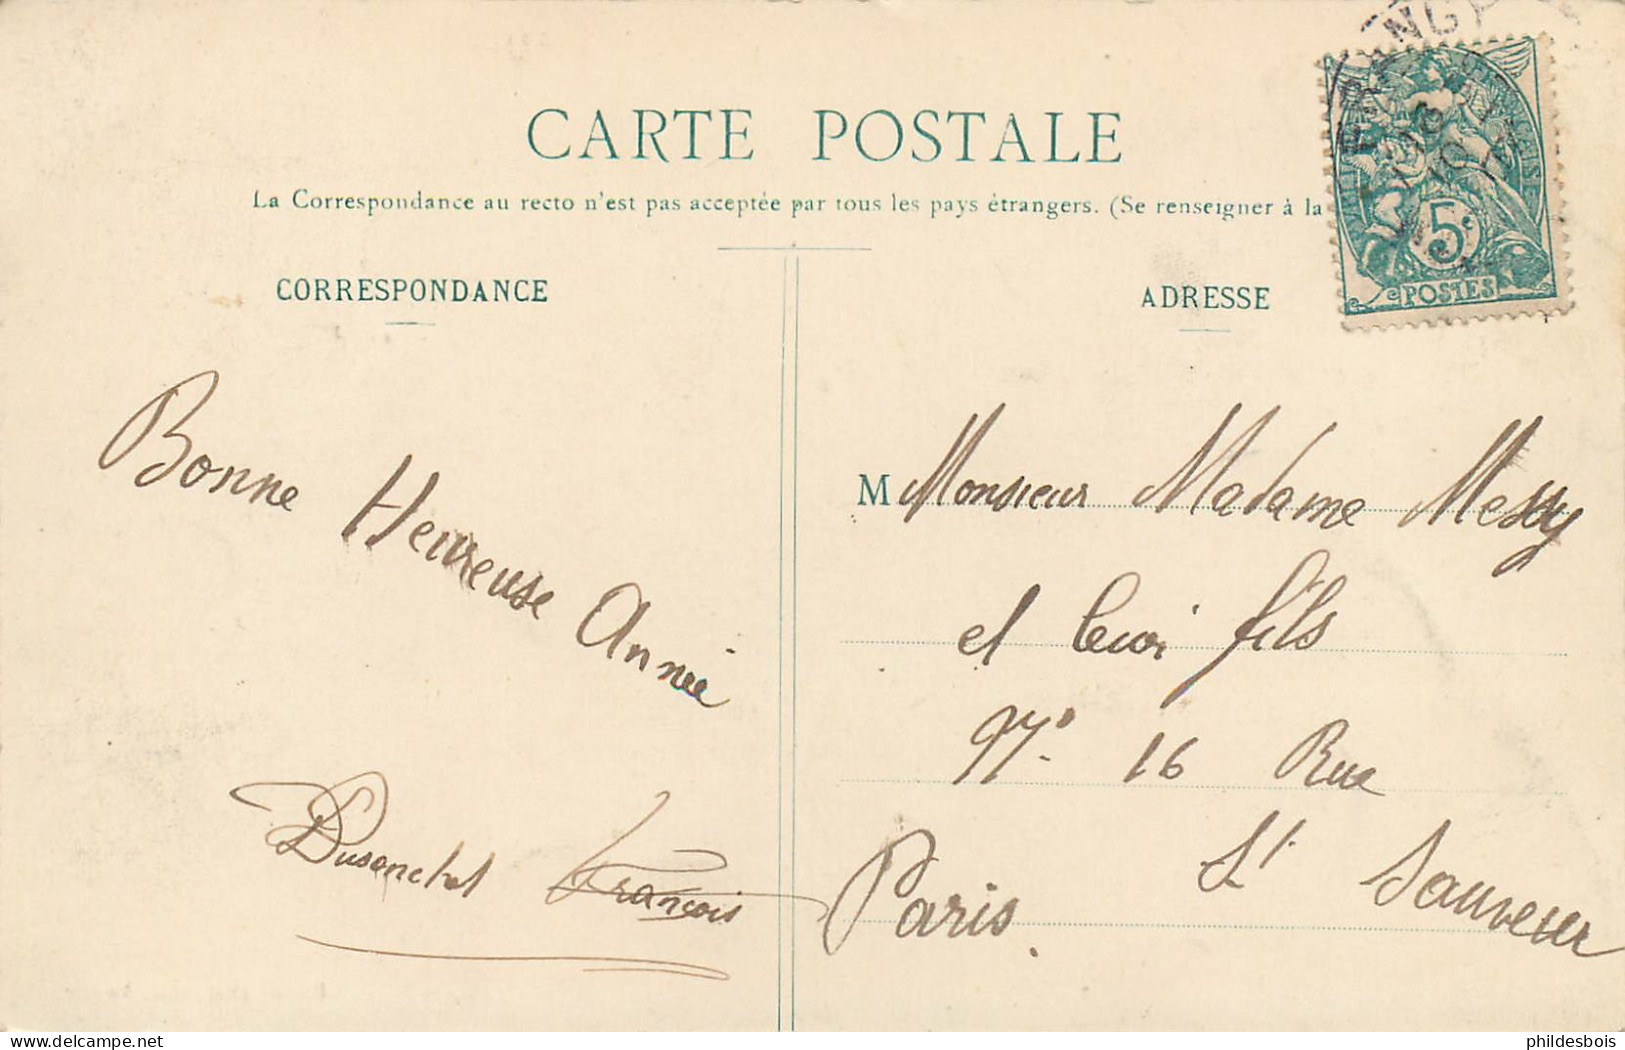 CARTE POSTALE
La Correspondance au recto n'est pas acceptée par tous les pays étrangers. (Se renseigner à la
CORRESPONDANCE
ADRESSE
5c
POSTES
Bonne Heureuse Année
François
M Monsieur Madame Messy
et leur fils
No. 16 Rue
St Sauveur
Paris.
phildesbois